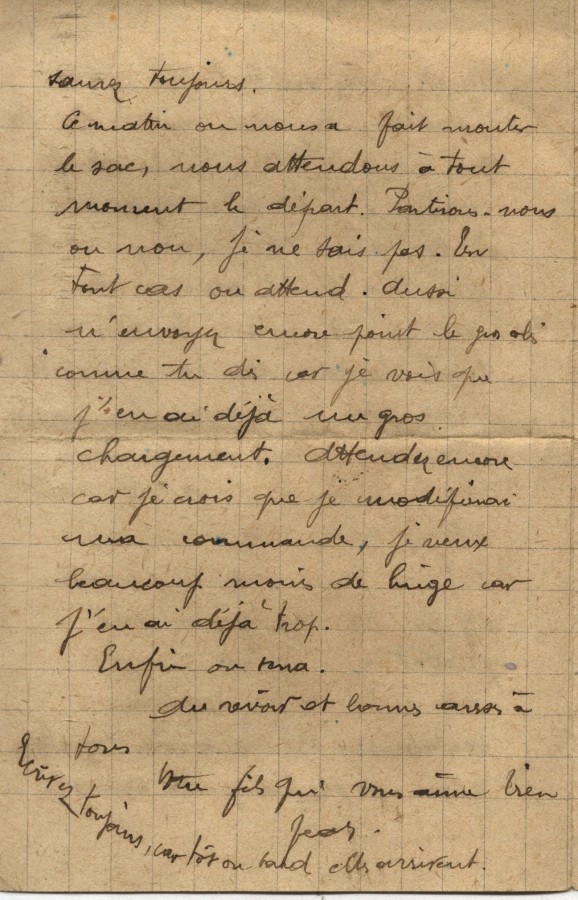 saurez toujours.
Ce matin on nous a fait monter
le sac, nous attendons à tout
moment le départ. Partirons-nous
ou non, je ne sais pas. En
tout cas on attend. Aussi
n'envoyez encore point le gros
comme tu dis car je vois que
j'en ai déjà un gros
chargement. Attendez encore
car je crois que je modifierai
ma commande, je veux
beaucoup moins de linge car
j'en ai déjà trop.
Enfin on verra.
Au revoir et bonnes à
tous
Votre fils qui vous aime bien
Ecrivez toujours, car tôt ou tard elles arrivent.